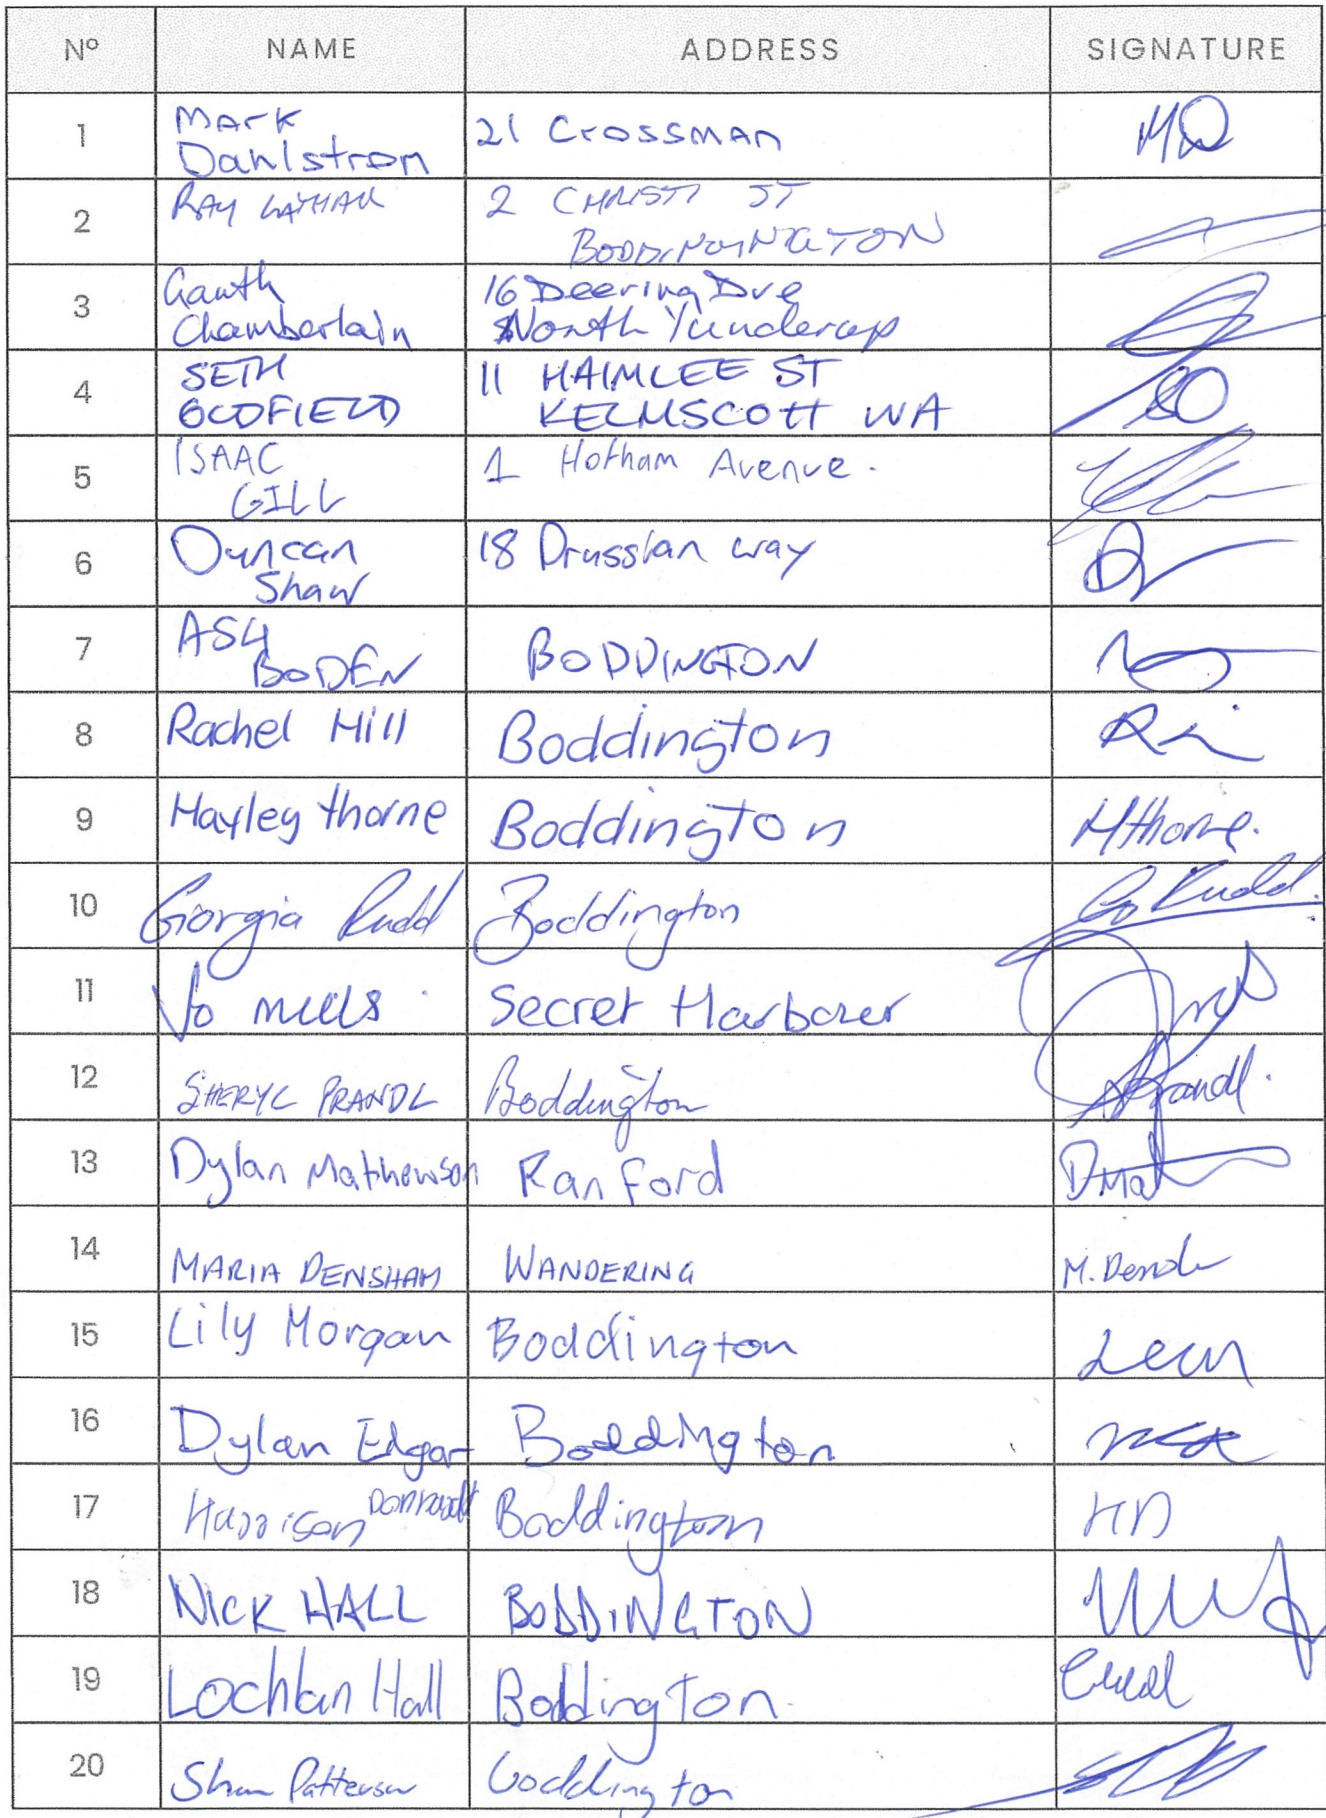 Nº NAME ADDRESS SIGNATURE
1 Mark 21 Crossman MD
Dahlstrom
2 RAY 2 CHRISTI ST
3 Garth 16 Deering Dve
Chamberlain North Yunderup
4 SETH 11 HAIMLEE ST SO
OLDFIELD KELMSCOTT WA
5 ISAAC 1 Hotham Avenue.
GILL
6 Duncan 18 Prussian way
Shaw
7 ASH BODDINGTON
BODEN
8 Rachel Hill Boddington
9 Hayley thorne Boddington Hthorne.
10 Giorgia Rudd Boddington G Rudd.
11 Jo mills Secret Harbourer
12 SHERYL PRANDL Boddington SPrandl.
13 Dylan Mathewson Ranford DMat
14 MARIA DENSHAM WANDERING M. Densh
15 Lily Morgan Boddington
16 Dylan Edgar Boddington
17 Harrison Boddington HD
18 NICK HALL BODDINGTON
19 Lochlan Hall Boddington.
20 Patterson Boddington